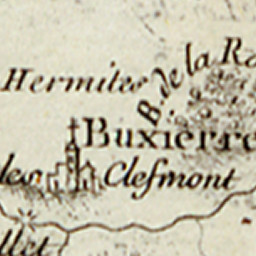 Hermites
B. de la Ro
Buxierre
les Clefmont
llet